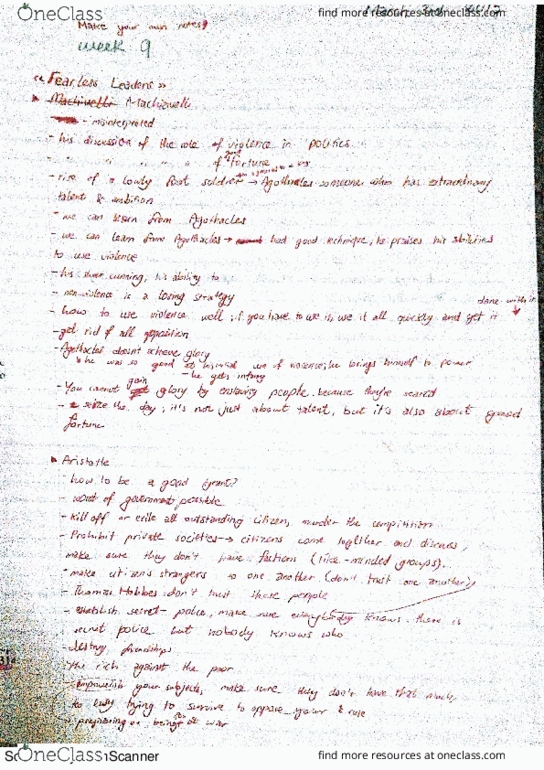 OneClass
find more resources at oneclass.com
Make your own notes!
week 9
"Fearless Leaders"
Machiavelli
- misinterpreted
- his discussion of the role of violence in politics
" " " " " of fortune
- rise of a lowly foot soldier → Agothacles someone who has extraordinary
talent & ambition
- we can learn from Agothacles
- we can learn from Agothacles → had good technique, he praises his abilities
to use violence
- his sheer cunning, his ability to
- non violence is a losing strategy
- how to use violence well ; if you have to use it, use it all quickly and get it done with it
- get rid of all opposition
- Agothacles doesn't achieve glory
he was so good at use of violence, he brings himself to power
- he gets infamy
- You cannot gain glory by enslaving people because they're scared
- seize the day ; it's not just about talent, but it's also about good
fortune
Aristotle
- how to be a good tyrant?
- worst of government possible
- kill off or exile all outstanding citizens, murder the competition
- Prohibit private societies → citizens come together and discuss,
make sure they don't have factions (like-minded groups).
- make citizens strangers to one another (don't trust one another)
- Thomas Hobbes don't trust those people
- establish secret-police, make sure everybody knows there is
secret police but nobody knows who
- destroy friendships
- the rich against the poor
- impoverish your subjects, make sure they don't have that much,
too busy trying to survive to oppose your rule
- being at war
OneClass
Scanner
find more resources at oneclass.com